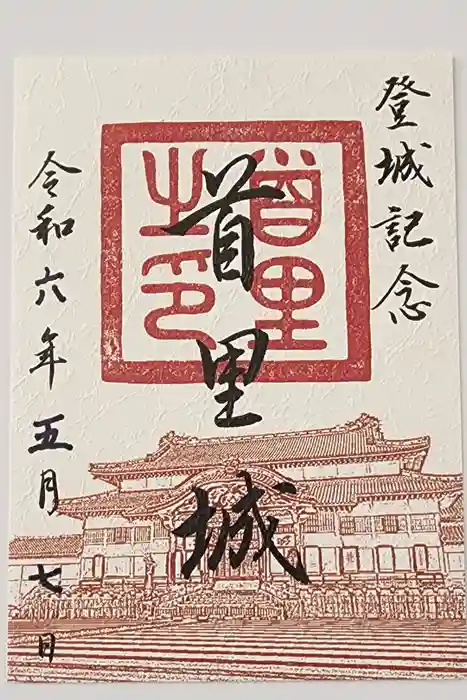 登城記念
首里之印
首里城
令和六年五月七日